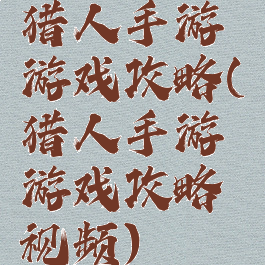 猎人手游
游戏攻略(
猎人手游
游戏攻略
视频)